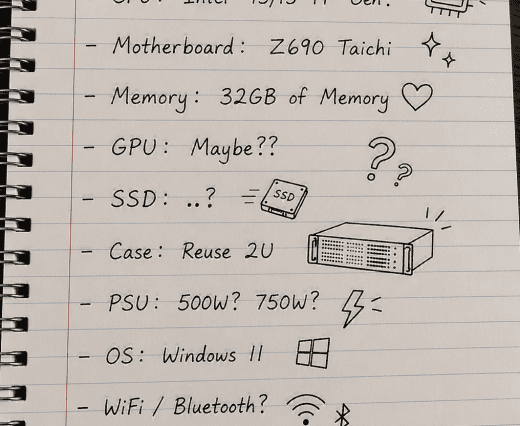 - Motherboard: Z690 Taichi
- Memory: 32GB of Memory
- GPU: Maybe??
??
- SSD: ..?
SSD
- Case: Reuse 2U
- PSU: 500W? 750W?
- OS: Windows 11
- WiFi / Bluetooth?